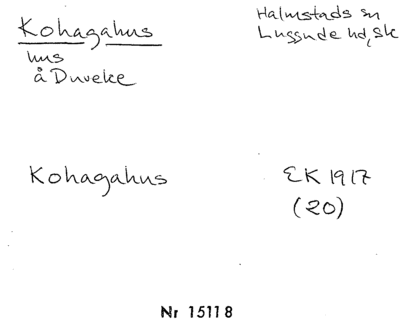 Kohagahus
Halmstads sn
Luggude hd, Sk
hus
å Duveke
Kohagahus
EK 1917
(20)
Nr 15118